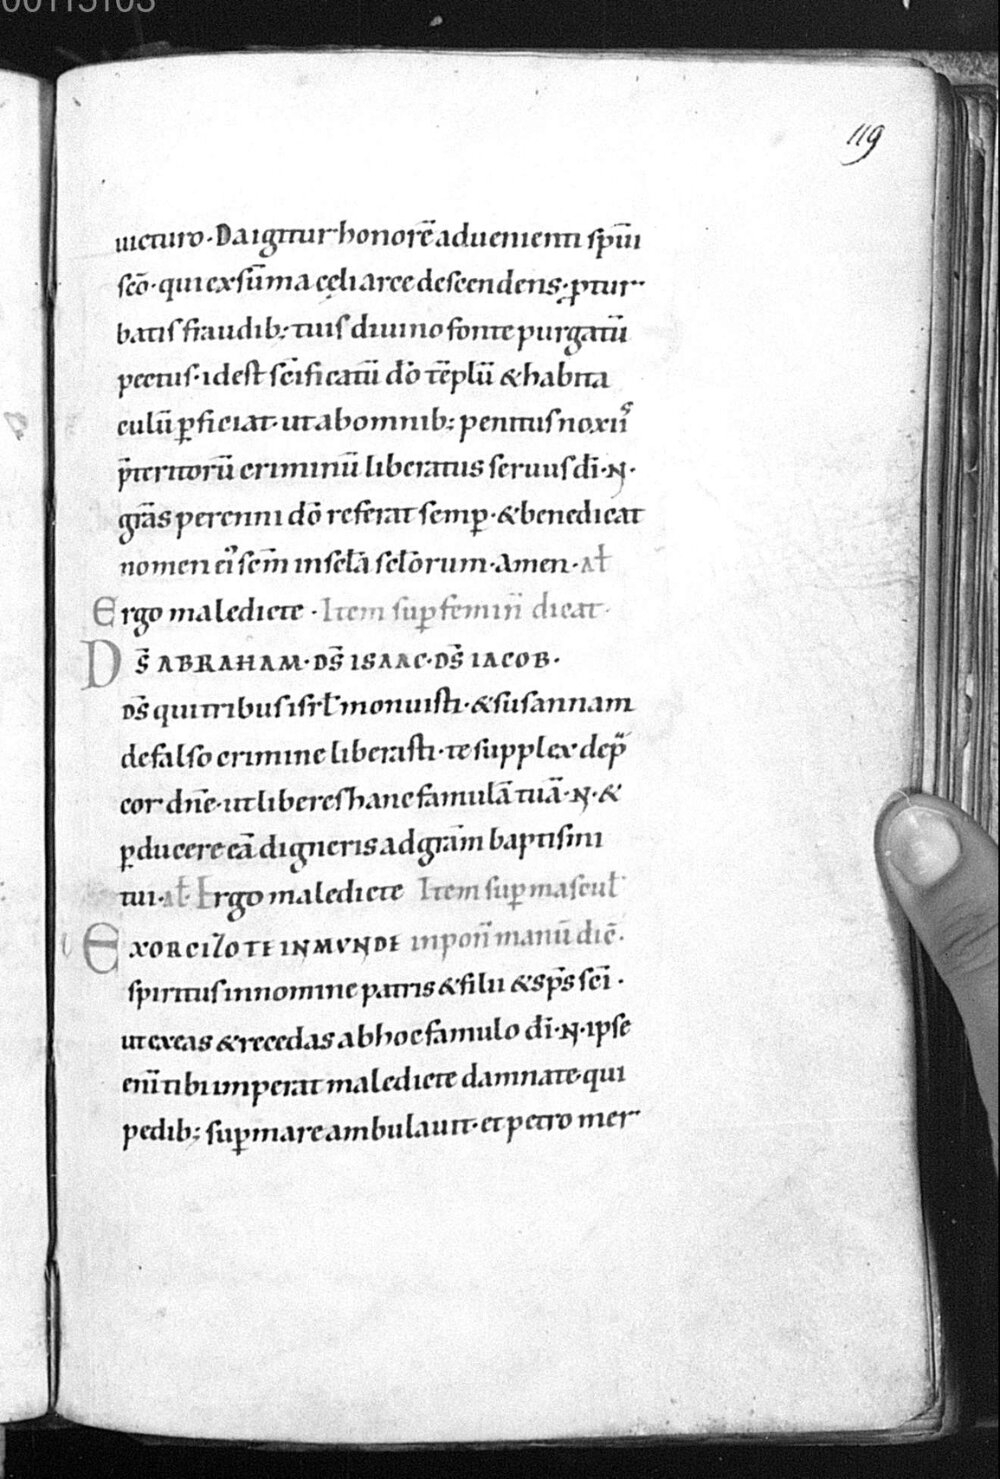 119
uicturo· Da igitur honorē aduenienti spūi
scō· qui ex sūma cęli arce descendens· ꝓtur
batis fraudib; tuis diuino fonte purgatū
pectus· id est scīficatū dō tēplū & habita
culū ꝑficiat· ut ab omnib; penitus noxiis
p̄teritorū criminū liberatus seruus dī· N·
grās perenni dō referat semꝑ· & benedicat
nomen eiꝰ scm̄ in scła scłorum· Amen· ał
Ergo maledicte· Item suꝑ femin̄ dicat·
DS̄ ABRAHAM· DS̄ ISAAC· DS̄ IACOB·
DS̄ qui tribus isrł monuisti· & susannam
de falso crimine liberasti· te supplex dep̄
cor dnē· ut liberes hanc famulā tuā· N· &
ꝑducere eā digneris ad grām baptismi
tui· ał Ergo maledicte Item suꝑ mascuł
EXORCIZO TE INMUNDE inpon̄ manū dic̄·
spiritus in nomine patris & filii & sp̄s scī·
ut exeas & recedas ab hoc famulo dī· N· ipse
enī tibi imperat maledicte damnate· qui
pedib; suꝑ mare ambulauit· et petro mer